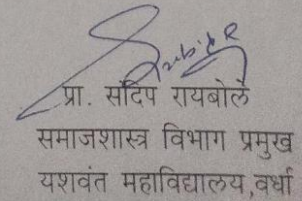 प्रा. संदिप रायबोले
समाजशास्त्र विभाग प्रमुख
यशवंत महाविद्यालय,वर्धा